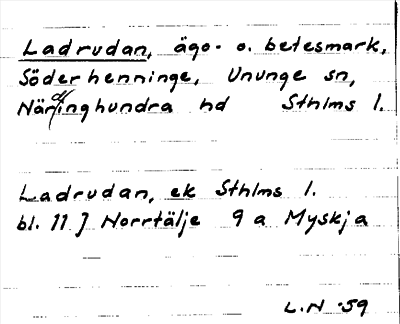 Ladrudan, ägo- o. betesmark,
Söderhenninge, Ununge sn,
Närdinghundra hd Sthlms l.
Ladrudan, ek Sthlms l.
bl. 11 J Norrtälje 9 a Myskja
L.N -59